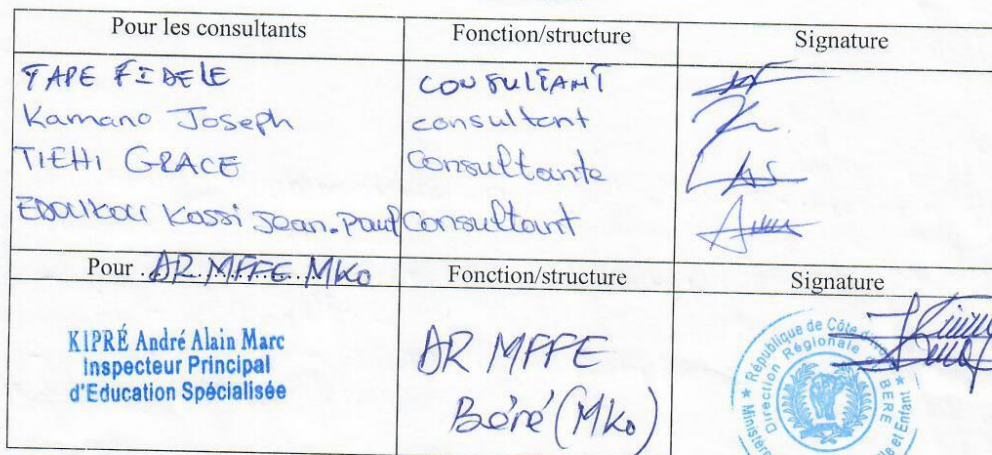 Pour les consultants Fonction/structure Signature
TAPE FIDELE CONSULTANT
Kamano Joseph consultant
TIEHI GRACE Consultante
EBOUKOU Kassi Jean-Paul Consultant
Pour AR MFFE MKo Fonction/structure Signature
KIPRÉ André Alain Marc
Inspecteur Principal
d'Education Spécialisée
AR MFFE
Béré (MKo)
République de Côte
Direction Régionale BERE
Ministère et Enfant